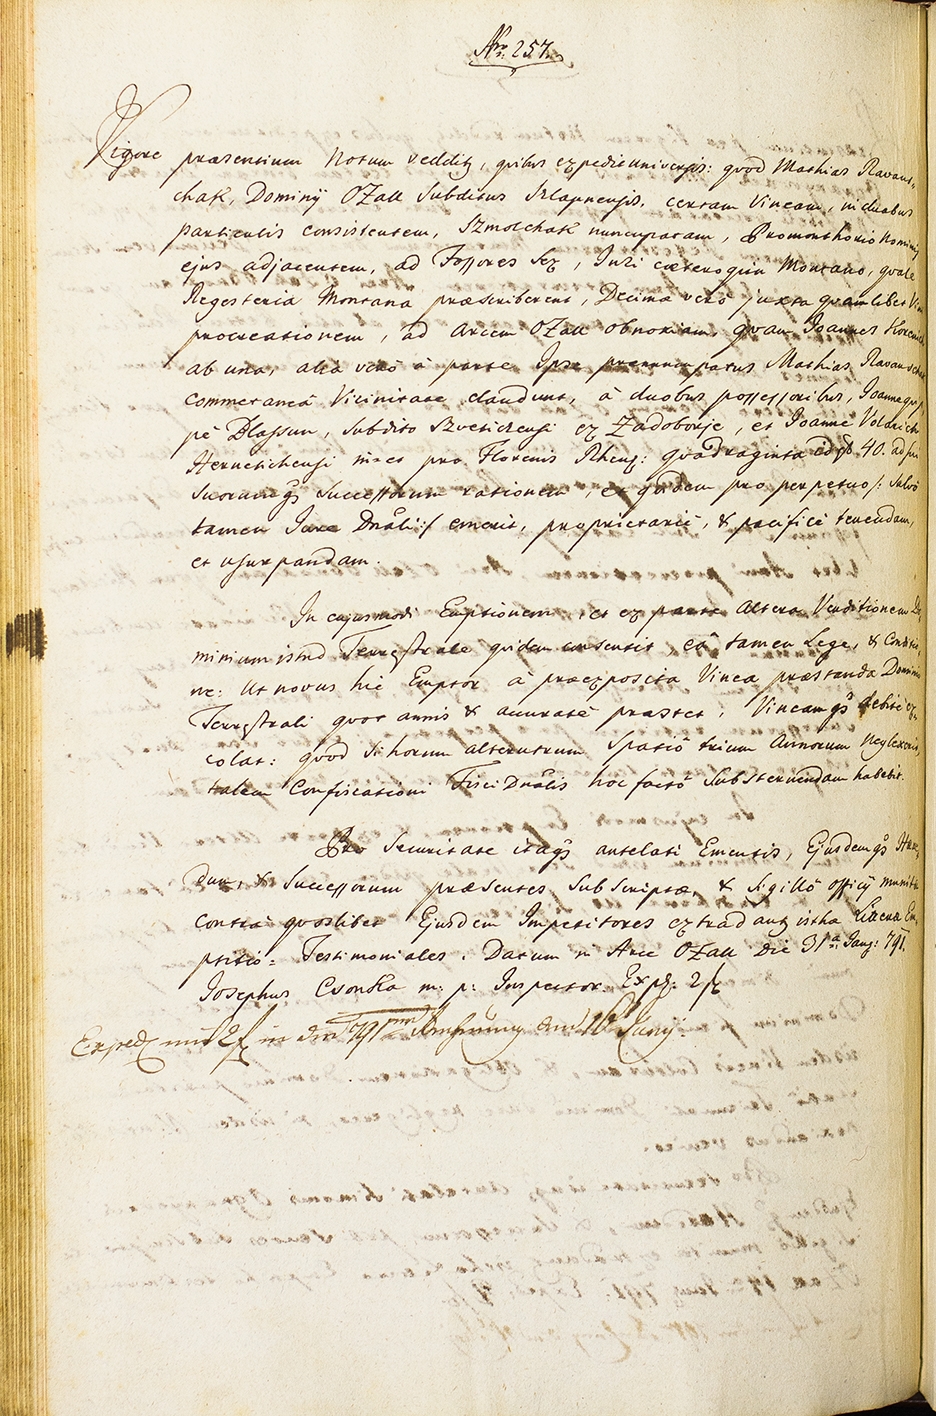 Nro. 257.
Vigore praesentium Notum redditq, quibus expedit universis: quod Mathias Ravans-
chak, Dominij OZall Subditus Szlapnensis, certam Vineam, in duabus
particulis consistentem, Szmolchak nuncupatam, Promonthorio Nominis
ejus adjacentem, ad Fossores Sex, Juri caeteroquin Montano, quale
Regesteria Montana praescriberent, Decima verò juxta quamlibet Vini
procreationem, ad Arcem OZall obnoxiam, quam Joannes
ab una, alia verò à parte Ipse praenuncupatus Mathias Ravanschak
commetaneâ Vicinitate claudunt, à duobus possessoribus, Joanne
pè Blassun, Subdito Szvetichensi ex Zadoborje, et Joanne Voldrich
Hernetichensi pro Florenis Rheng: quadraginta id est f 40. ad sui
Suorumqs Successorum rationem, et quidem pro perpetuo /: Salvò
tamen Jure Dnâli :/ emerit, proprietariè, & pacificè tenendam,
et usurpandam.
In ejusmodi Emptionem, et ex parte altera Venditionem Do-
minium istud Terrestrale quidem consensit, eâ tamen Lege, & Conditio-
ne: Ut novus hic Emptor à praeexposita Vinea praestanda Dominio
Terrestrali quot annis & accuratè praestet, Vineamqs debitè ex-
colat: quod si horum alterutrum Spatiô trium Annorum neglexerit,
talem Confiscationi Fisci Dnâlis hoc factô Substernendam habebit.
Pro Securitate itaqs antelati Ementis, Ejusdemqs Haere-
dum, & Successorum praesentes Subscriptae, & Sigillô officij munitae
contra quoslibet Ejusdem Impetitores extradantq istha Litterae Em-
ptitio = Testimoniales. Datum in Arce OZall Die 31a. Janz: 791.
Josephus Csonka m: p: Inspector. Exp: 2 f
Exped mit 2 f in der 791 den Jäny.